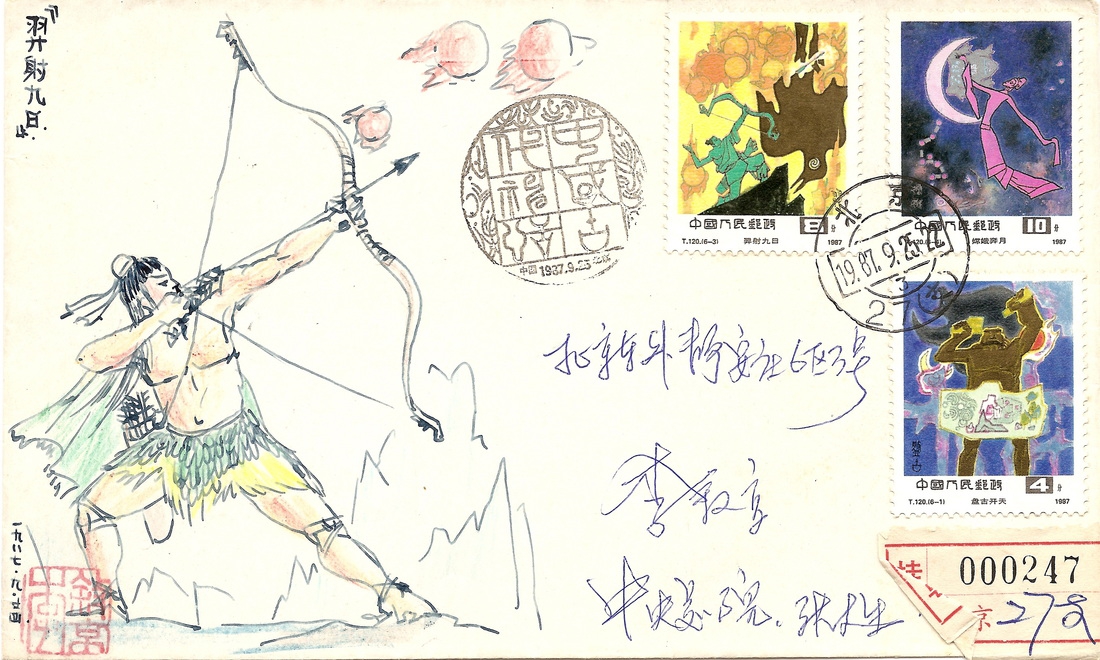 羿射九日
中國古代神話
中国 1987.9.25 北京
中国人民邮政 8分
T.120.(6-3) 羿射九日 1987
中国人民邮政 10分
嫦娥奔月 1987
北京
1987.9.25.22
27
北京东外静安社6区3号
盘古
中国人民邮政 4分
T.120.(6-1) 盘古开天 1987
李
中央美院
一九八七·九·
000247
京 278